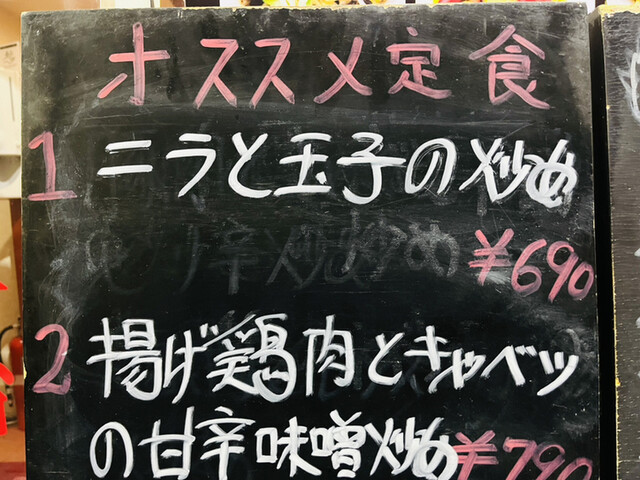 オススメ定食
1 ニラと玉子の炒め
¥690
2 揚げ鶏肉とキャベツ
の甘辛味噌炒め ¥790